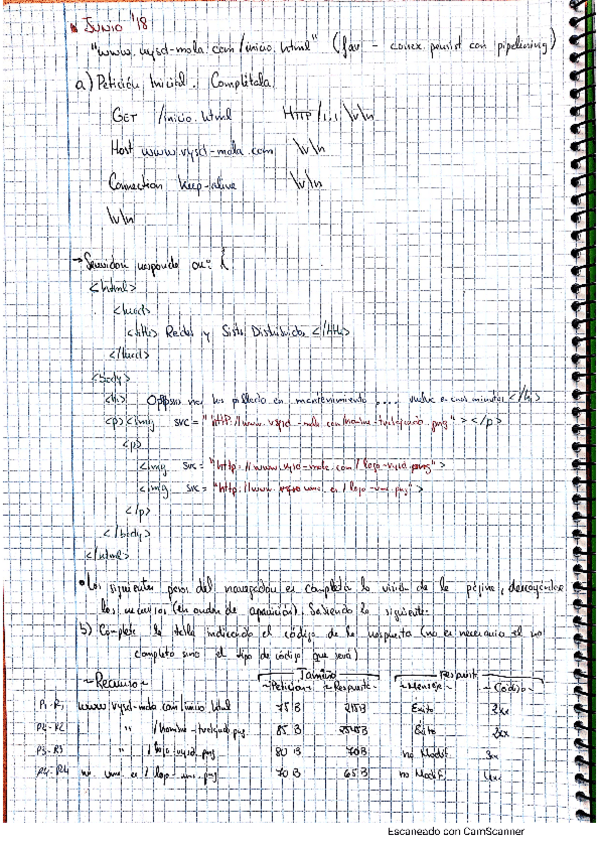 Junio '18
"www.vysd-mola.com/inicio.html" (fav - conex. persist con pipelining)
a) Petición Inicial. Complétala
GET /inicio.html HTTP/1.1 \r\n
Host www.vysd-mola.com \r\n
Connection keep-alive \r\n
\r\n
→ Servidor responde con: {
<html>
<head>
<title> Redes y Sist Distribuidos </title>
</head>
<body>
<h1> en mantenimiento .... vuelve en unos minutos </h1>
<p><img src="http://www.vysd-mola.com/hombre-trabajando.png"></p>
<p>
<img src="http://www.vysd-mola.com/logo-vysd.png">
<img src="http://www. .es/logo-uma.png">
</p>
</body>
</html>
• Los siguientes pasos del navegador es completar la visión de la página, descargándose
los recursos (en orden de aparición). Sabiendo lo siguiente:
b) Complete la tabla indicando el código de la respuesta (no es necesario el no
completo sino el tipo de código que será)
Tamaño respuesta
~Recurso~ ~Petición~ ~Respuesta~ ~Mensaje~ ~Código~
P1-R1 www.vysd-mola.com/inicio.html 75 B Éxito 2xx
P2-R2 " /hombre-trabajando.png 85 B Éxito 2xx
P3-R3 " /logo-vysd.png 80 B 70B no Modif. 3xx
P4-R4 .es/logo-uma.png 70 B 65B no Modif. 4xx
Escaneado con CamScanner